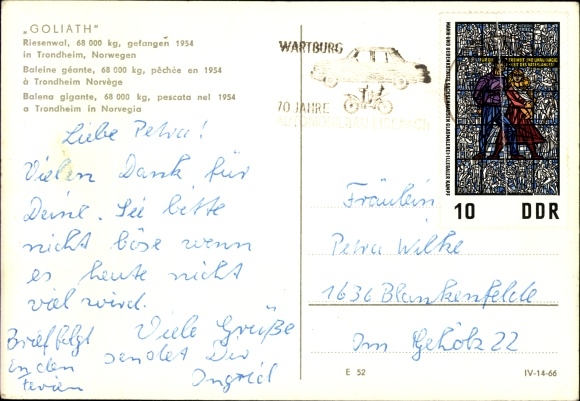 „GOLIATH"
Riesenwal, 68 000 kg, gefangen 1954
in Trondheim, Norwegen
Baleine géante, 68 000 kg, pêchée en 1954
à Trondheim à Norvège
Balena gigante, 68 000 kg, pescata nel 1954
a Trondheim in Norvegia
Liebe Petra!
Vielen Dank für
Deine. Sei bitte
nicht böse wenn
es heute nicht
viel wird.
Viele Grüße
sendet Dir
Ingrid
Brief folgt
in den
Ferien
WARTBURG
70 JAHRE
10 DDR
Fräulein
Petra Wilke
1636 Blankenfelde
Im Gehölz 22
E 52
IV-14-66